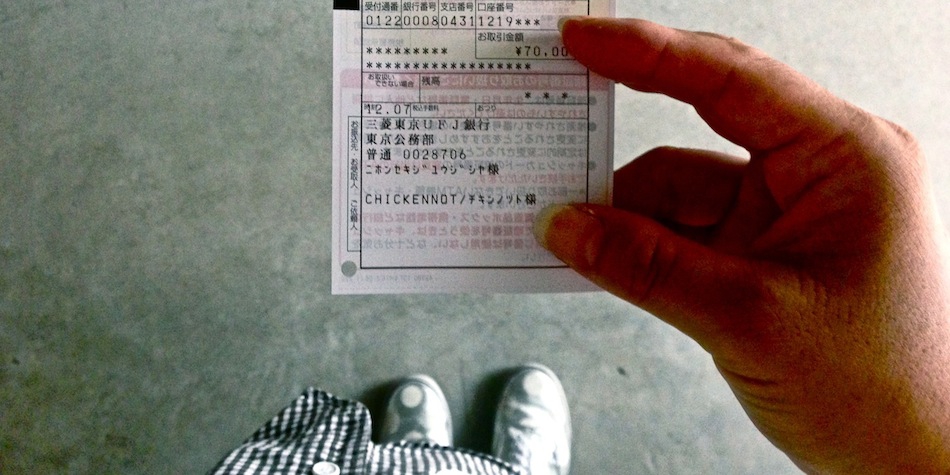 受付通番 銀行番号 支店番号 口座番号
0122 0008 0431 1219***
お取引金額
********* ¥70,00
******************
お取扱いできない場合 残高
* * *
時刻 12.07 税込手数料 おつり
お振込先・お受取人・ご依頼人
三菱東京UFJ銀行
東京公務部
普通 0028706
ニホンセキジュウジシャ様
CHICKENNOT/チキンノット様